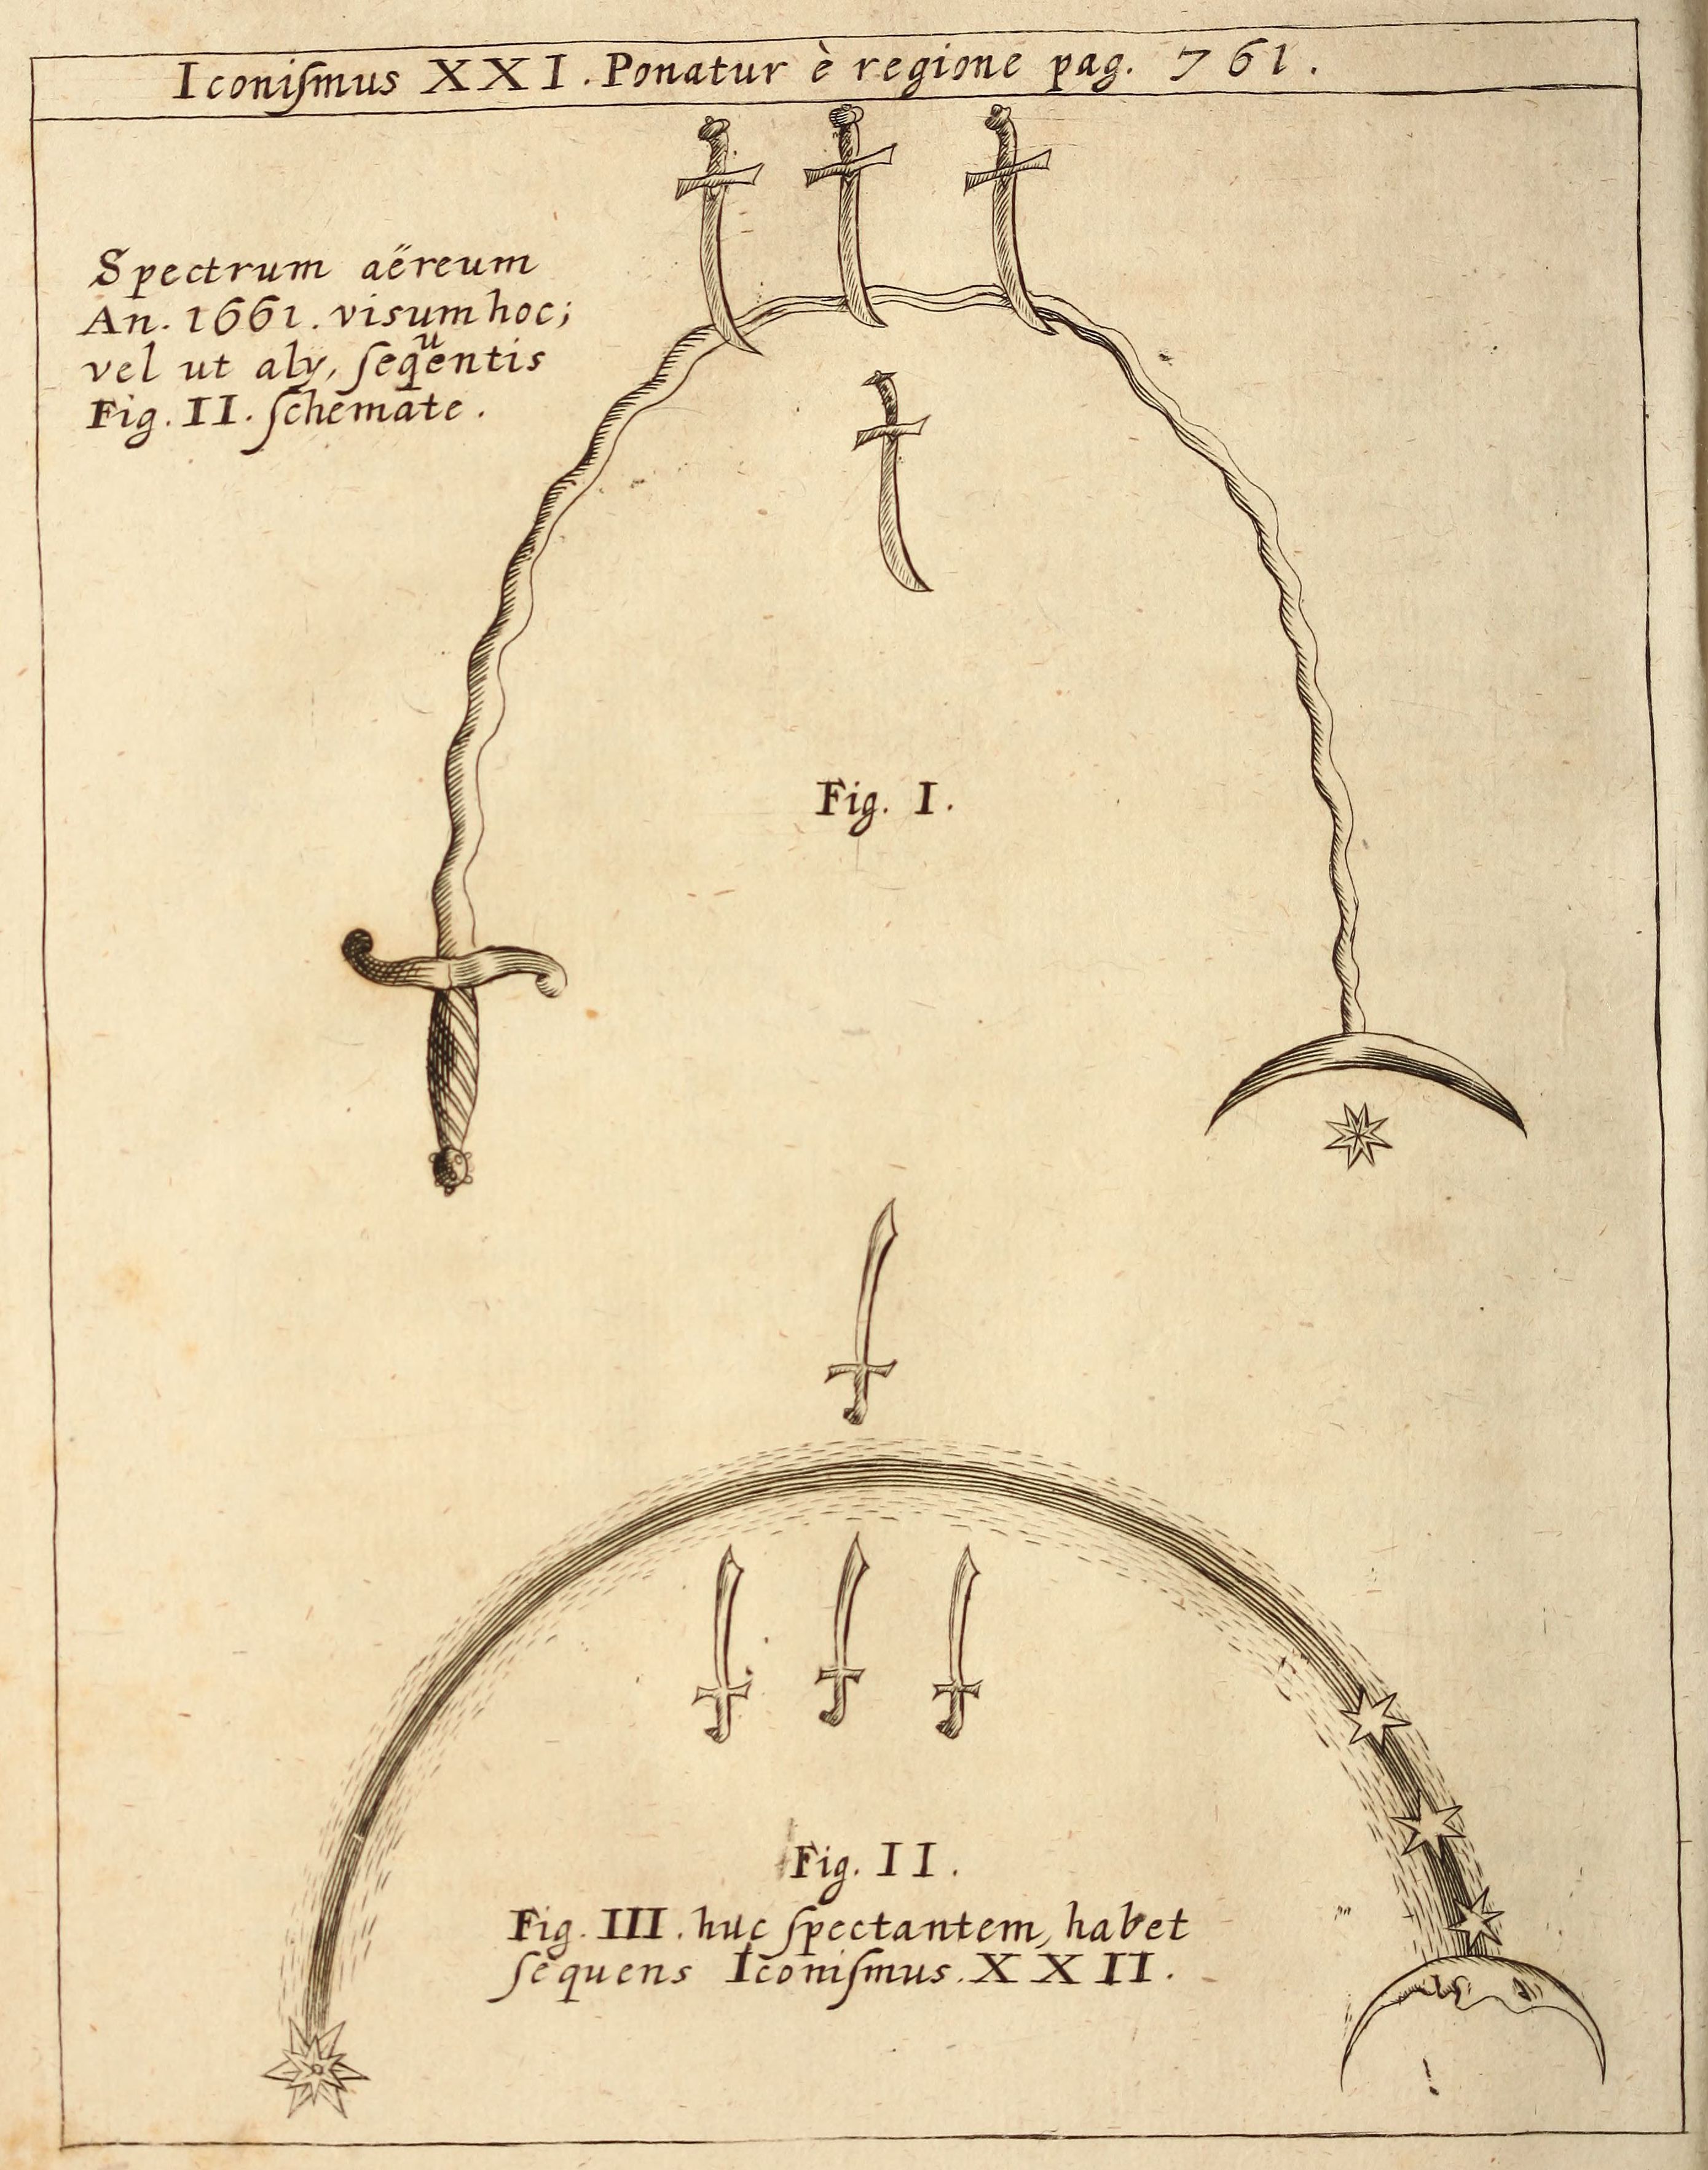 Iconiſmus XXI. Ponatur è regione pag. 761.
Spectrum aëreum
An. 1661. visum hoc;
vel ut alÿ, ſequentis
Fig. II. ſchemate.
Fig. I.
Fig. II.
Fig. III. huc ſpectantem, habet
ſequens Iconiſmus. XXII.